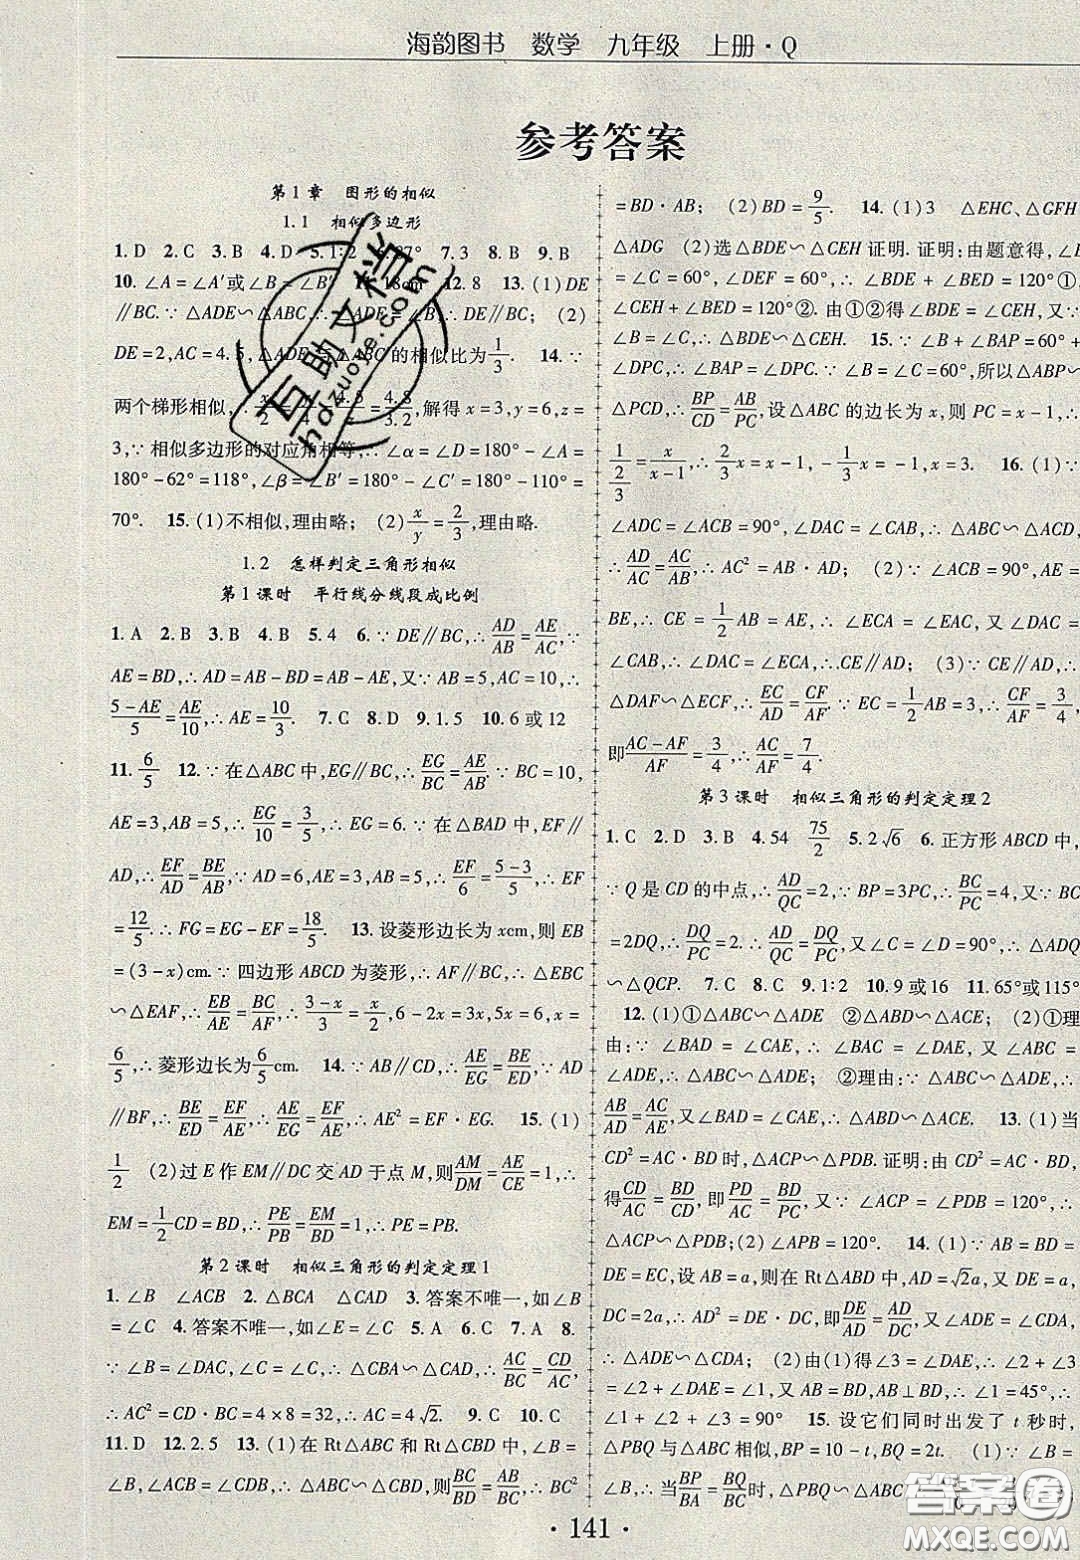 海韵图书 数学 九年级 上册·Q
参考答案
第1章 图形的相似
1.1 相似多边形
1. D 2. C 3. B 4. D 5. 1∶2 7. 3 8. B 9. B
10. ∠A=∠A′或∠B=∠B′ 18cm 12. 8 13. (1)DE
∥BC. ∵△ADE∽△ABC,∴∠ADE=∠B,∴DE∥BC; (2)
DE=2,AC=4.5,△ADE与△ABC的相似比为1/3. 14. ∵
两个梯形相似,∴x/2= =4.5/ =4.8/3.2,解得x=3,y=6,z=
3,∵相似多边形的对应角相等,∴∠α=∠D=180°-∠A=
180°-62°=118°,∠β=∠B′=180°-∠C′=180°-110°=
70°. 15. (1)不相似,理由略; (2)x/y=2/3,理由略.
1.2 怎样判定三角形相似
第1课时 平行线分线段成比例
1. A 2. B 3. B 4. B 5. 4 6. ∵DE∥BC,∴AD/AB=AE/AC,∵
AE=BD,∴AD=AB-BD=AB-AE,又∵AB=5,AC=10,∴
(5-AE)/5=AE/10,∴AE=10/3. 7. C 8. D 9. 1.5 10. 6或12
11. 6/5 12. ∵在△ABC中,EG∥BC,∴EG/BC=AE/AB. ∵BC=10,
AE=3,AB=5,∴EG/10=3/5,∴EG=6. ∵在△BAD中,EF∥
AD,∴EF/AD=BE/AB,∵AD=6,AE=3,AB=5,∴EF/6=(5-3)/5,∴EF
=12/5. ∴FG=EG-EF=18/5. 13. 设菱形边长为xcm,则EB
=(3-x)cm. ∵四边形ABCD为菱形,∴AF∥BC,∴△EBC
∽△EAF,∴EB/AE=BC/AF,∴(3-x)/3=x/2,6-2x=3x,5x=6,x=
6/5,∴菱形边长为6/5cm. 14. ∵AB∥CD,∴AE/EG=BE/ED,∵AD
∥BF,∴BE/ED=EF/AE,∴AE/EG=EF/AE,∴AE²=EF·EG. 15. (1)
1/2 (2)过E作EM∥DC交AD于点M,则AM/DM=AE/CE=1,∴
EM=1/2CD=BD,∴PE/PB=EM/BD=1,∴PE=PB.
第2课时 相似三角形的判定定理1
1. ∠B ∠ACB 2. △BCA △CAD 3. 答案不唯一,如∠B
=∠C 4. 答案不唯一,如∠E=∠C 5. A 6. C 7. A 8.
∵∠B=∠DAC,∠C=∠C,∴△CBA∽△CAD,∴AC/BC=CD/AC,
∴AC²=CD·BC=4×8=32,∴AC=4√2. 9. C 10. C
11. D 12. 2.5 13. (1)在Rt△ABC和Rt△CBD中,∠B=
∠B,∠ACB=∠CDB,∴Rt△ABC∽Rt△CBD,则BC/BD=AB/BC,∴BC²
=BD·AB; (2)BD=9/5. 14. (1)3 △EHC、△GFH
△ADG (2)选△BDE∽△CEH证明. 证明:由题意得,∠B
=∠C=60°,∠DEF=60°,∴∠BDE+∠BED=120°①,
∠CEH+∠BED=120°②. 由①②得∠BDE=∠CEH,又∵
∠B=∠C,∴△BDE∽△CEH. 15. ∵∠B+∠BAP=60°+
∠DPC,∴∠BAP=∠DPC. ∵∠B=∠C=60°,所以△ABP∽
△PCD,∴BP/CD=AB/PC,设△ABC的边长为x,则PC=x-1,∴
1/(2/3)=x/(x-1),∴2/3x=x-1,-1/3x=-1,x=3. 16. (1)∵
∠ADC=∠ACB=90°,∠DAC=∠CAB,∴△ABC∽△ACD,
∴AD/AC=AC/AB,∴AC²=AB·AD; (2)∵∠ACB=90°,AE=
BE,∴CE=1/2AB=AE,∴∠ECA=∠EAC,又∵∠DAC=
∠CAB,∴∠DAC=∠ECA,∴CE∥AD; (3)∵CE∥AD,∴
△DAF∽△ECF,∴EC/AD=CF/AF. ∵EC=1/2AB=3,∴CF/AF=3/4,
即(AC-AF)/AF=3/4,∴AC/AF=7/4.
第3课时 相似三角形的判定定理2
1. C 2. D 3. B 4. 54 75/2 5. 2√6 6. 正方形ABCD中,
∵Q是CD的中点,∴AD/QC=2,∵BP=3PC,∴BC/PC=4,又∵BC
=2DQ,∴DQ/PC=2. ∴AD/QC=DQ/PC,又∵∠D=∠C=90°,∴△ADQ
∽△QCP. 7. C 8. C 9. 1∶2 10. 9或16 11. 65°或115°
12. (1)①△ABC∽△ADE ②△ABD∽△ACE; (2)①理
由:∵∠BAD=∠CAE,∴∠BAC=∠DAE,又∠ABC=
∠ADE,∴△ABC∽△ADE; ②理由:∵△ABC∽△ADE,∴
AB/AD=AC/AE,又∠BAD=∠CAE,∴△ABD∽△ACE. 13. (1)当
CD²=AC·BD时,△ACP∽△PDB. 证明:由CD²=AC·BD
得CD/AC=BD/CD,即PD/AC=BD/PC,又∵∠ACP=∠PDB=120°,∴
△ACP∽△PDB; (2)∠APB=120°. 14. (1)∵AB=BD=
DE=EC,∠B=90°,设AB=a,则在Rt△ABD中,AD=√2a,DE=a,
DC=2a,∴AD²=DE·DC,即DE/AD=AD/DC,又∠ADE=∠CDA,
∴△ADE∽△CDA; (2)由(1)得∠3=∠C,∴∠2+∠3
=∠2+∠DAE=∠1,又AB=BD,AB⊥BD,∴∠1=45°,∴
∠1+∠2+∠3=90° 15. 设它们同时出发了t秒时,
△PBQ与△ABC相似,BP=10-t,BQ=2t. (1)∵∠B=
∠B,∴当BP/BA=BQ/BC时,△PBQ∽△ABC,
·141·
百助文档
hdzuoye.com
答案圈
MXQE.COM